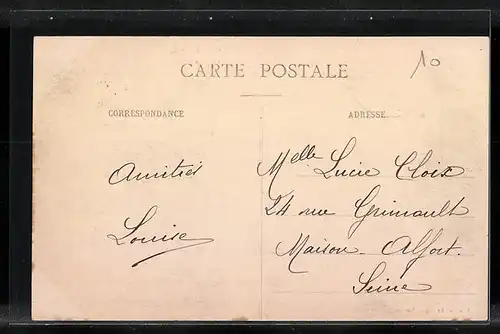 10
CARTE POSTALE
CORRESPONDANCE
ADRESSE
Amitiés
Louise
Melle Lucie Cloix
24 rue Grimault
Maison-Alfort.
Seine